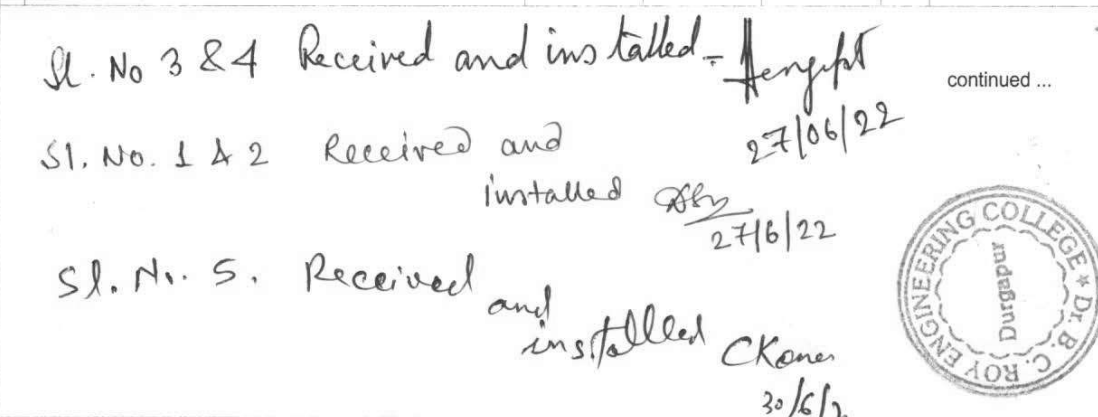 Sl. No 3 & 4 Received and installed -
continued ...
27/06/22
Sl. No. 1 & 2 Received and
installed
27/6/22
Sl. No. 5. Received
and
installled
CKoner
30/6/2
Dr. B. C. ROY ENGINEERING COLLEGE *
Durgapur